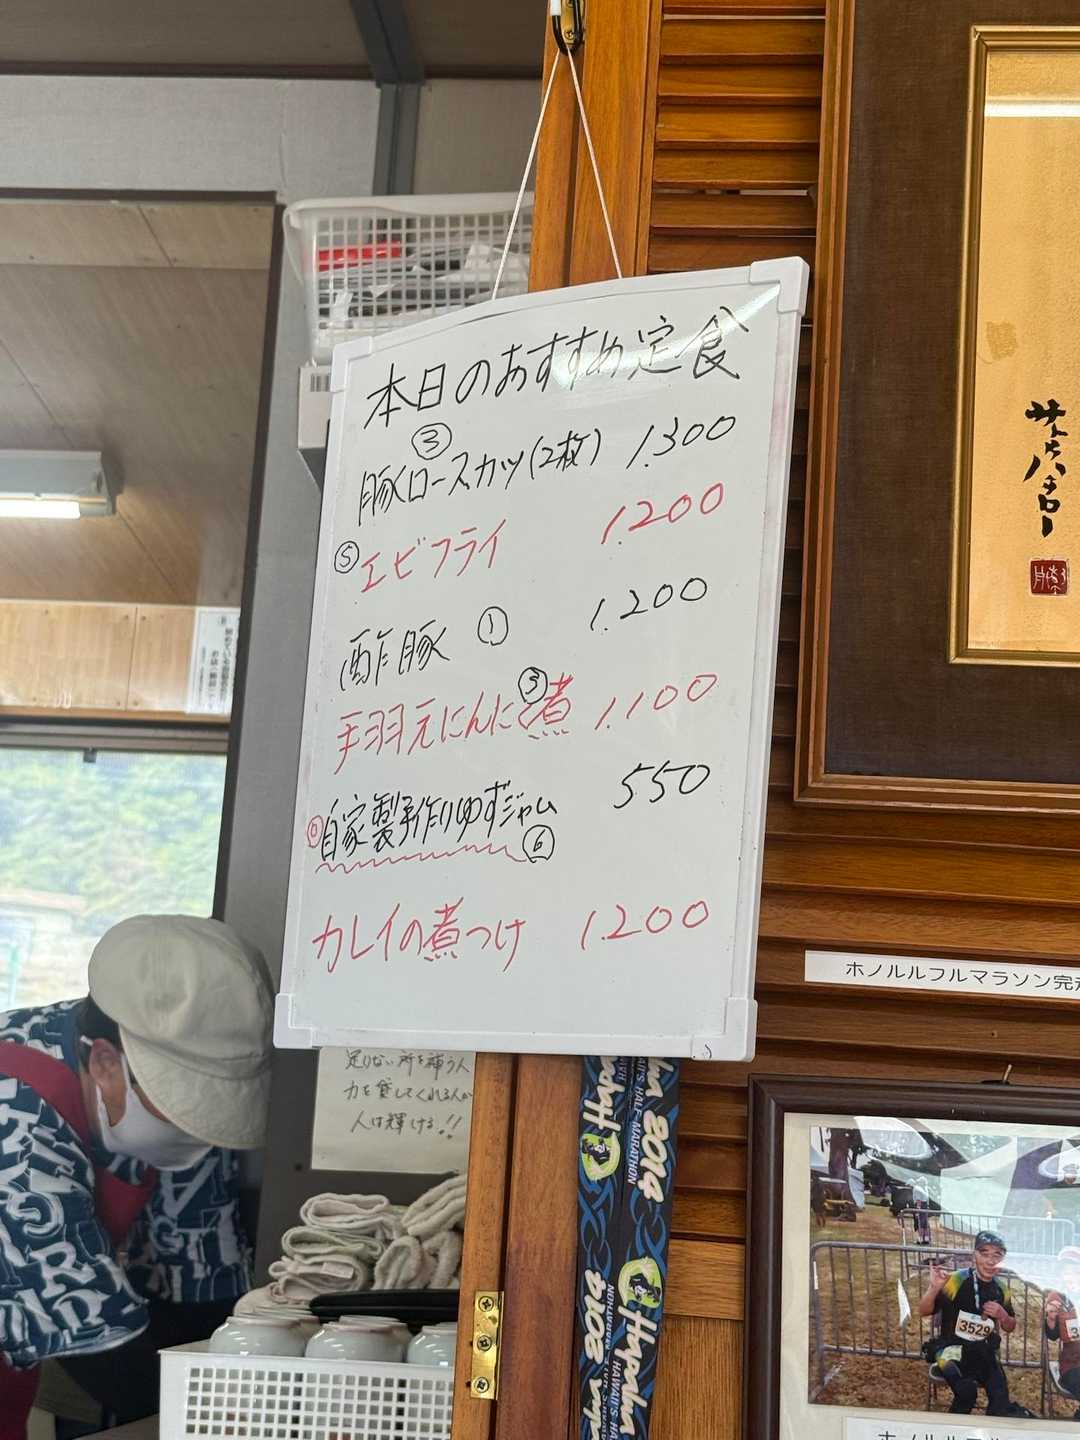 本日のおすすめ定食
③
豚ロースカツ(2枚) 1.300
⑤エビフライ 1.200
酢豚 ① 1.200
手羽元にんにく煮 ③ 1.100
自家製手作りゆずジャム 550
⑥
カレイの煮つけ 1.200
足りない所を補う人
力を貸してくれる人が
人は輝ける!!
サトウハチロー
ホノルルフルマラソン完走
Hapalua 2014
HAWAII'S HALF MARATHON
3529